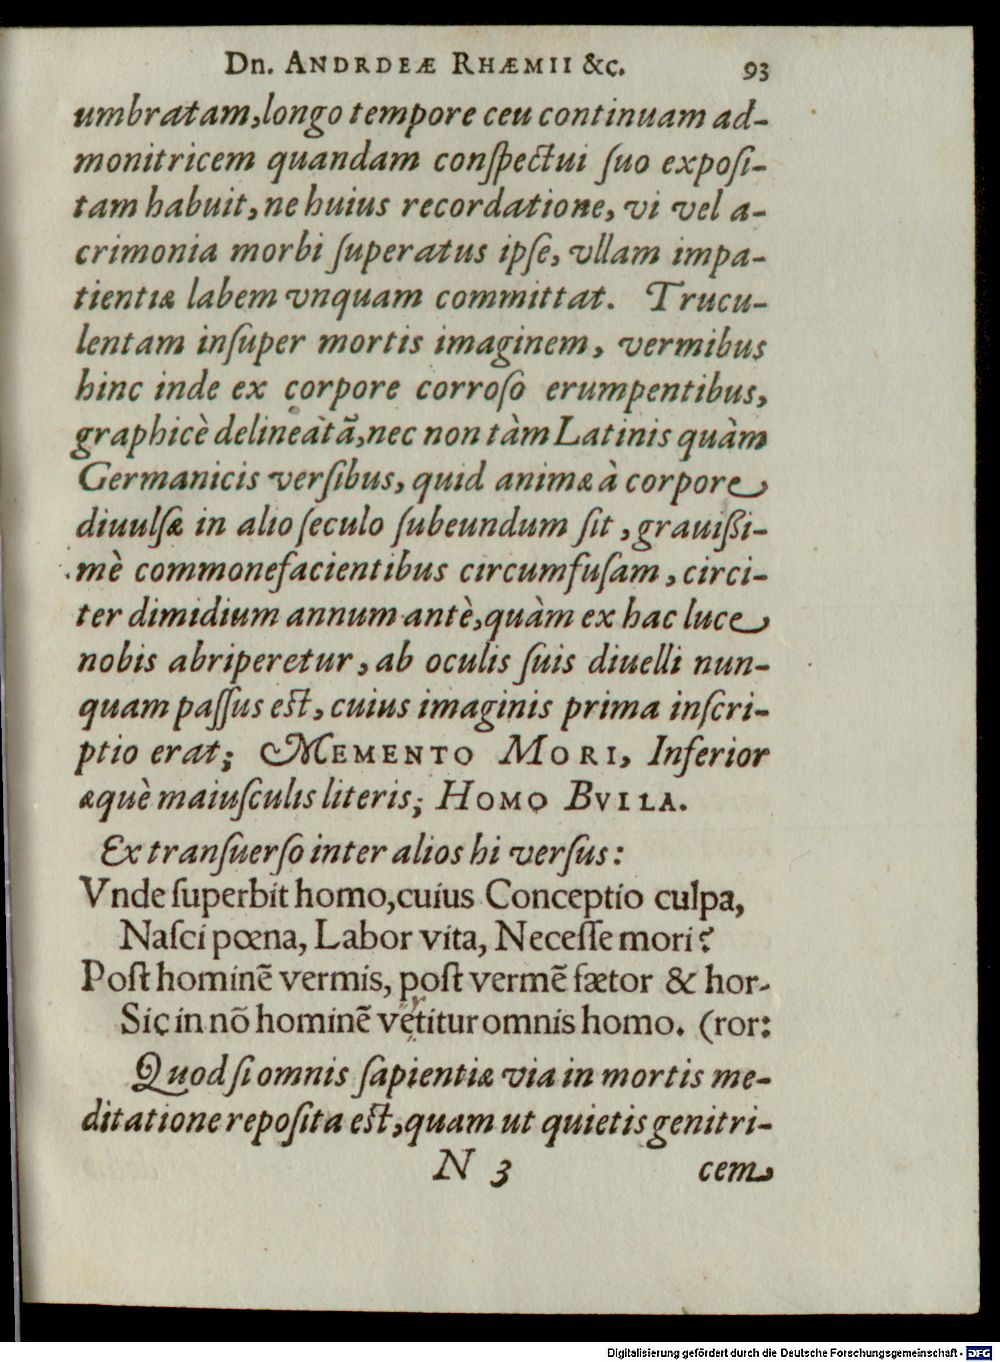 Dn. ANDRDEÆ RHÆMII &c. 93
umbratam, longo tempore ceu continuam ad-
monitricem quandam conſpectui ſuo expoſi-
tam habuit, ne huius recordatione, vi vel a-
crimonia morbi ſuperatus ipſe, vllam impa-
tientiæ labem vnquam committat. Trucu-
lentam inſuper mortis imaginem, vermibus
hinc inde ex corpore corroſo erumpentibus,
graphicè delineàtã, nec non tàm Latinis quàm
Germanicis verſibus, quid animæ à corpore
diuulſæ in alio ſeculo ſubeundum ſit, grauißi-
mè commonefacientibus circumfuſam, circi-
ter dimidium annum antè, quàm ex hac luce
nobis abriperetur, ab oculis ſuis diuelli nun-
quam paſſus eſt, cuius imaginis prima inſcri-
ptio erat; MEMENTO MORI, Inferior
æquè maiuſculis literis; HOMO BVLLA.
Ex tranſuerſo inter alios hi verſus:
Vnde ſuperbit homo, cuius Conceptio culpa,
Naſci pœna, Labor vita, Neceſſe mori?
Poſt hominẽ vermis, poſt vermẽ fætor & hor-
Sic in nõ hominẽ vertitur omnis homo. (ror:
Quod ſi omnis ſapientiæ via in mortis me-
ditatione repoſita eſt, quam ut quietis genitri-
N 3 cem
Digitalisierung gefördert durch die Deutsche Forschungsgemeinschaft - DFG